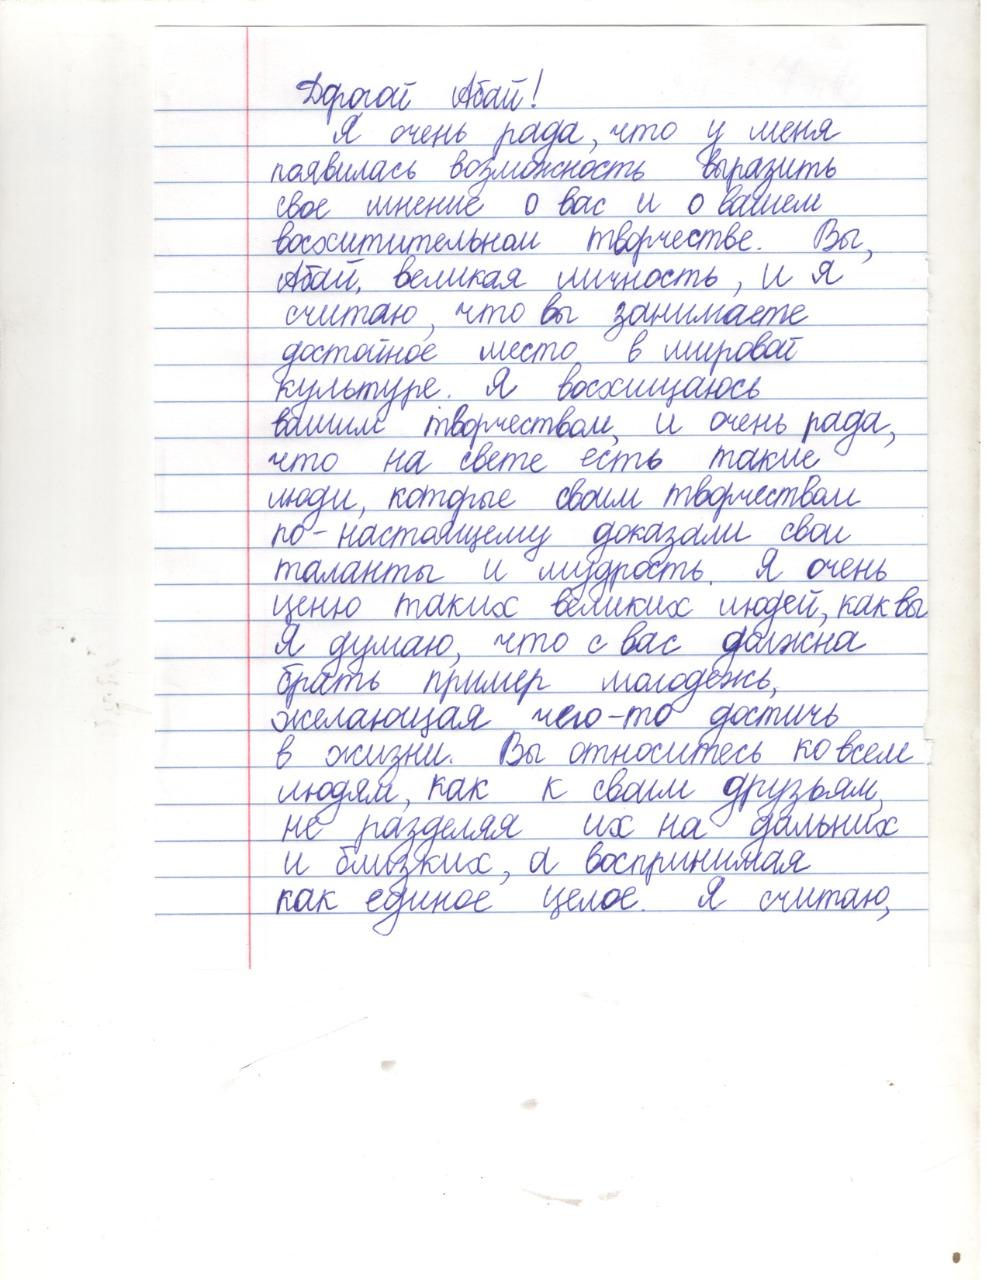 Дорогой Абай!
Я очень рада, что у меня
появилась возможность выразить
свое мнение о вас и о вашем
восхитительном творчестве. Вы,
Абай, великая личность, и я
считаю, что вы занимаете
достойное место в мировой
культуре. Я восхищаюсь
вашим творчеством, и очень рада,
что на свете есть такие
люди, которые своим творчеством
по-настоящему доказали свои
таланты и мудрость. Я очень
ценю таких великих людей, как вы
Я думаю, что с вас должна
брать пример молодежь,
желающая чего-то достичь
в жизни. Вы относитесь ко всем
людям, как к своим друзьям,
не разделяя их на дальних
и близких, а воспринимая
как единое целое. Я считаю,